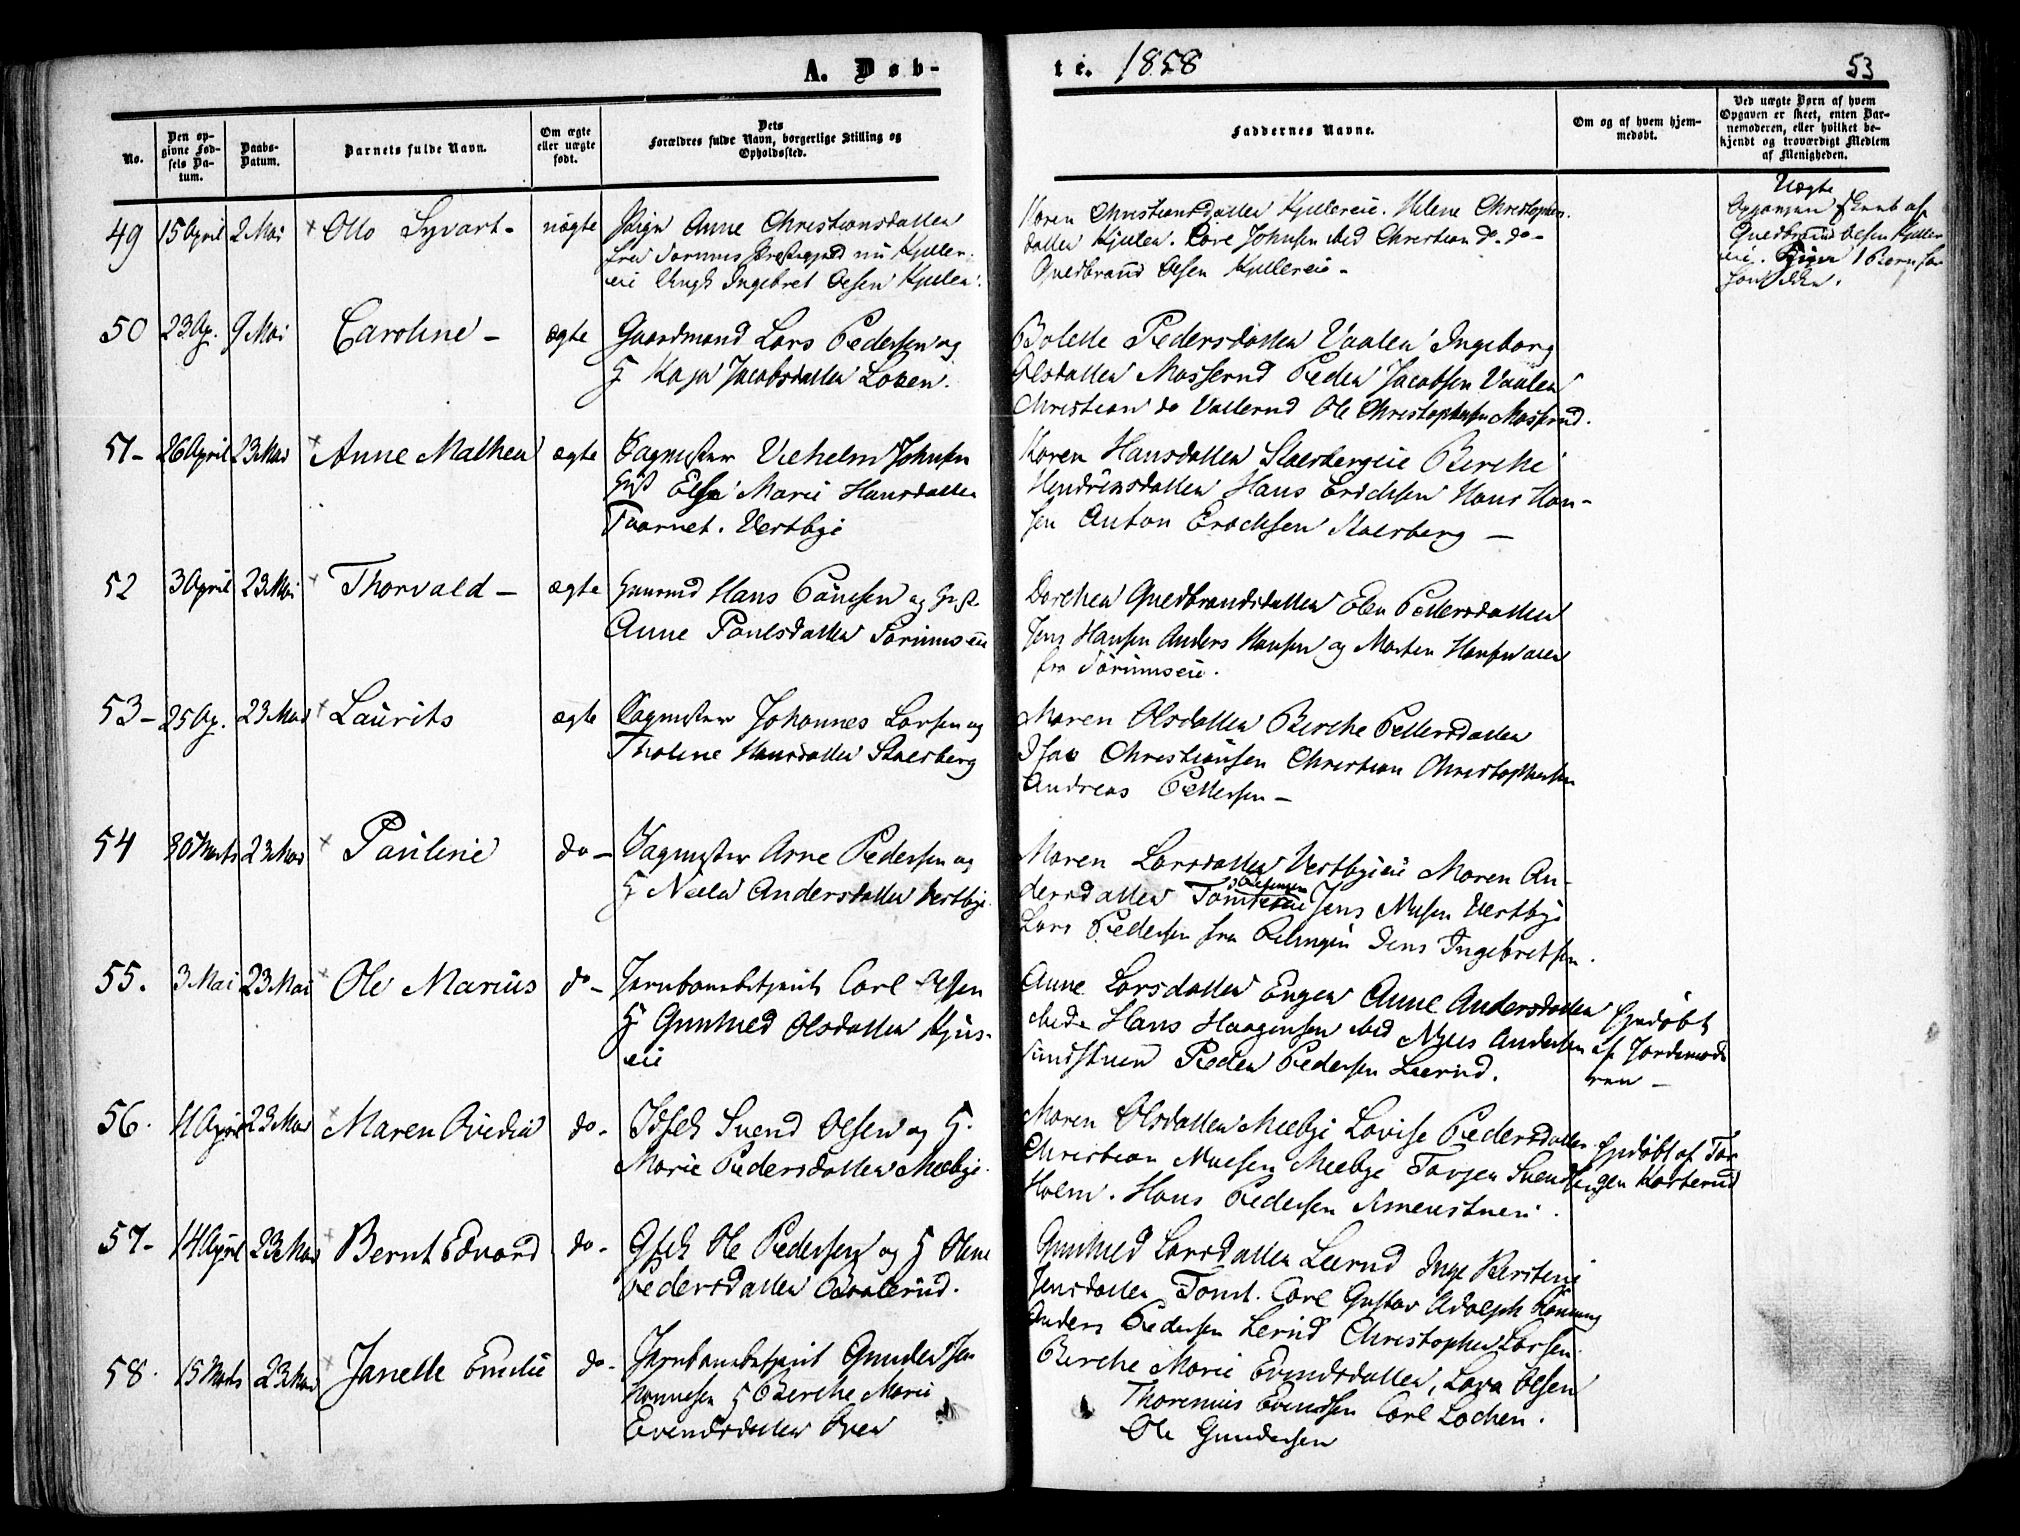 A. Døb-
te. 1858
53
No.
Den op-
givne Fød-
sels Da-
tum.
Daabs-
Datum.
Barnets fulde Navn.
Om ægte
eller uægte
født.
Dets
Forældres fulde Navn, borgerlige Stilling og
Opholdssted.
Faddernes Navne.
Om og af hvem hjem-
medøbt.
Ved uægte Børn af hvem
Opgaven er skeet, enten Bar-
nemoderen, eller hvilket be-
kjendt og troværdigt Medlem
af Menigheden.
49 15 April 2 Mai Otto Syvart- uægte Pige Anne Christiansdatter
nu Kjeller-
eie Ungk Ingebret Olsen Kjeller.
Karen Christiansdatter Kjellereie. Helene Christophers-
datter Kjeller. Lars Johnsen ibid Christian do. do-
Gudbrand Olsen Kjellereie-
Uægte
Opgaven skeet af
Gudbrand Olsen Kjeller-
eie.
50 23 Ap. 9 Mai Caroline- ægte Gaardmand Lars Pedersen og
H Kaja Jacobsdatter
Bolette Pedersdatter Vaaler Ingeborg
Olsdatter Masserud Peder Jacobsen Vaaler
Christian do Vallerud Ole Christophersen Masserud.
51- 26 April 23 Mai Anne Mathea ægte Sagmester Vilhelm Johnsen
Hust Else Marie Hansdatter
Taarnet. Vestbye
Karen Hansdatter Staesbergeie Berthe
Hendriksdatter Hans Erichsen Hans Han-
sen Anton Erichsen Staesberg-
52 3 April 23 Mai Thorvald- ægte Hans Paulsen og
Anne Paulsdatter Sørumseie
Dorthea Gudbrandsdatter Elen Pettersdatter
Jens Hansen Anders Hansen og Morten Hansen alle
fra Sørumseie.
53- 25 Ap. 23 Mai Laurits ægte Sagmester Johannes Larsen og
Tholine Hansdatter Staesberg
Maren Olsdatter Berthe Pettersdatter
Isak Christiansen Christian Christophersen
Andreas Pettersen-
54 30 Marts 23 Mai Pauline do- Sagmester Arne Pedersen og
H Andersdatter Vestbye.
Maren Larsdatter Vestbyeie Maren An-
dersdatter Jens Vestbye
Lars Pedersen fra Jens Ingebretsen.
55. 3 Mai 23 Mai Ole Marius do- Jernbanebetjent Carl Olsen
H Gunhild Olsdatter Kjus-
eie
Anne Larsdatter Engen Anne Andersdatter
ibid. Hans Haagensen ibid Andersen
Peder Pedersen Leerud.
Hjemdøbt
af Jordemode
ren-
56. 11 April 23 Mai Maren do- Svend Olsen og H.
Marie Pedersdatter Melbye.
Maren Olsdatter Melbye Lovise Pedersdatter
Christian Melbye Torger Svendsen
Holm. Hans Pedersen
Hjemdøbt af Tor
gen Korterud
57- 14 April 23 Mai Bernt Edvard do- Ole Pedersen og H Oline
Pedersdatter
Gunhild Larsdatter Leerud Inge Berthine
Jensdatter Tomt. Carl Gustav Adolph
Anders Pedersen Lerud Christopher Larsen.
58. 15 Marts 23 Mai Janette Emilie do- Jernbanebetjent Gunder Jo-
hannesen H Berthe Marie
Evensdatter
Berthe Marie Evensdatter, Olsen
Thorenius Evensen Carl Lochen.
Ole Gundersen